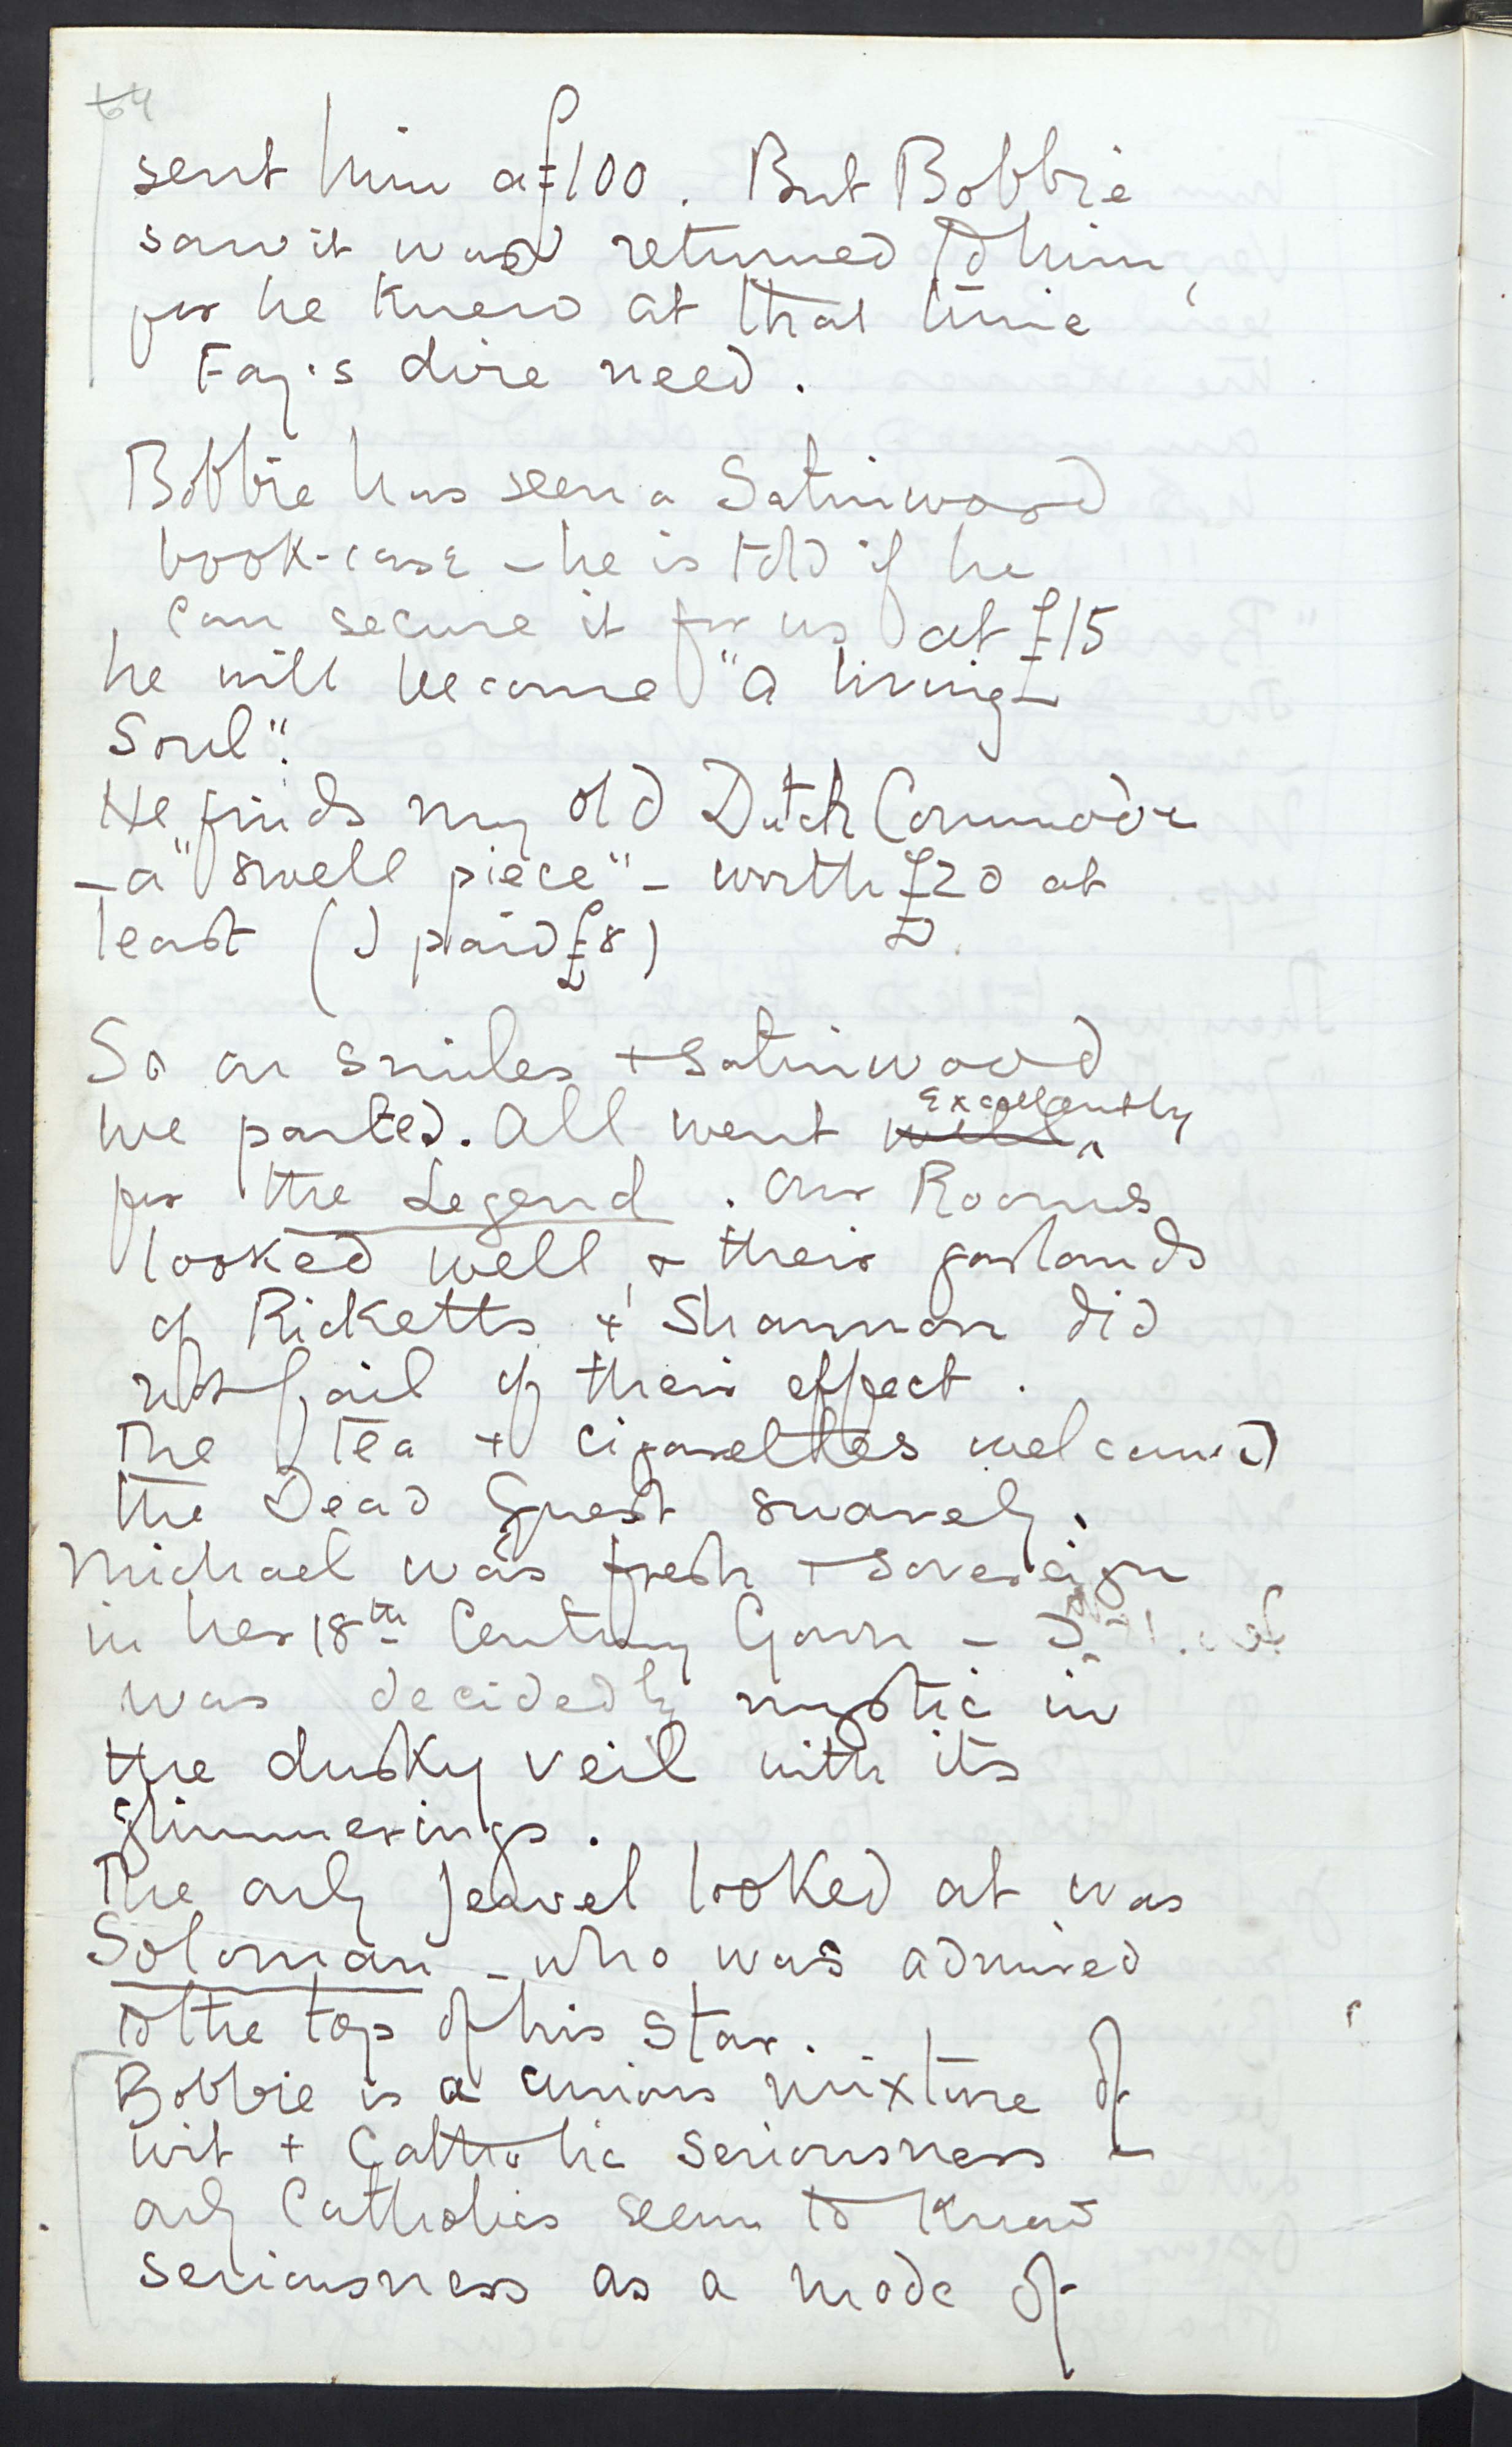 64
sent him a £100. But Bobbie
saw it was returned to him,
for he knew at that time
Fay's dire need.
Bobbie has seen a Satinwood
book-case – he is told if he
can secure it for us at £15
he will become "a living
Soul".
He finds my old Dutch Commode
– a "swell piece" – worth £20 at
least (I paid £8)
So on smiles + satinwood
we parted. All went well excellently
for the Legend. Our Rooms
looked well, & their garlands
of Ricketts + Shannon did
not fail of their effect.
The tea + cigarettes welcomed
the Dead Guest suavely.
Michael was fresh + sovereign
in her 18th Century Gown –
was decidedly mystic in
the dusky veil with its
glimmerings.
The only jewel looked at was
Solomon – who was admired
to the top of his star.
Bobbie is a curious mixture of
wit + Catholic seriousness –
only Catholics seem to know
seriousness as a mode of